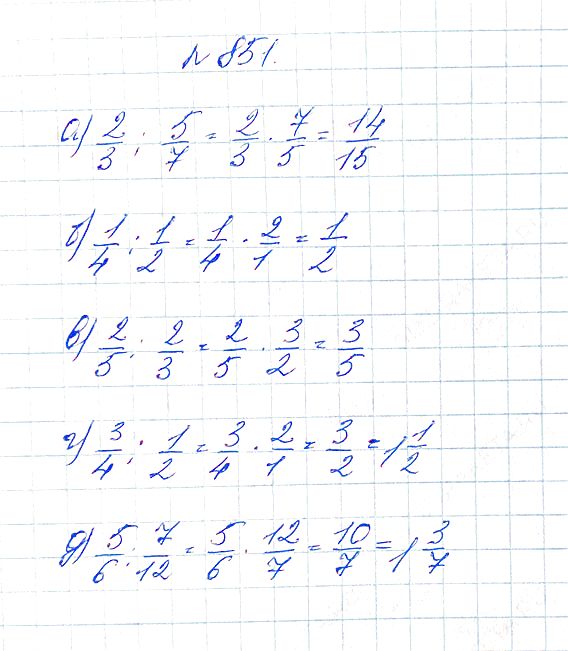 № 851.
а) 2/3 : 5/7 = 2/3 · 7/5 = 14/15
б) 1/4 : 1/2 = 1/4 · 2/1 = 1/2
в) 2/5 : 2/3 = 2/5 · 3/2 = 3/5
г) 3/4 : 1/2 = 3/4 · 2/1 = 3/2 = 1 1/2
д) 5/6 : 7/12 = 5/6 · 12/7 = 10/7 = 1 3/7